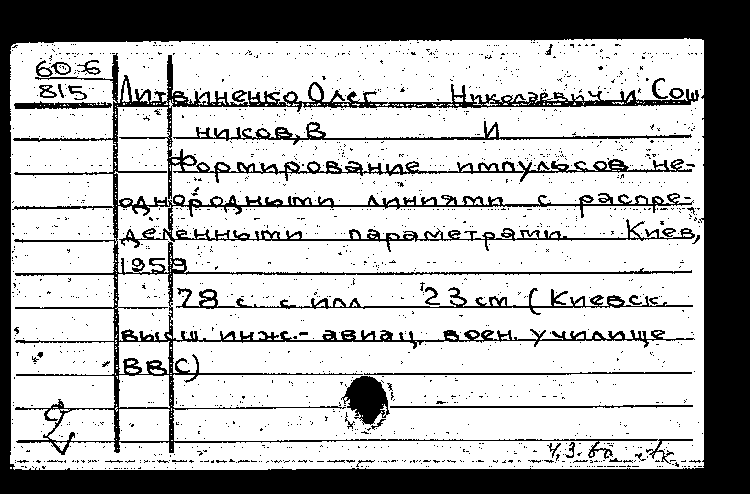 60-6
815
Литвиненко, Олег Николаевич и Сош-
ников, В И
Формирование импульсов не-
однородными линиями с распре-
деленными параметрами. Киев,
1959
78 с. с илл 23 cm (Киевск.
высш. инж.- авиац. воен. училище
ВВС)
4.3.60